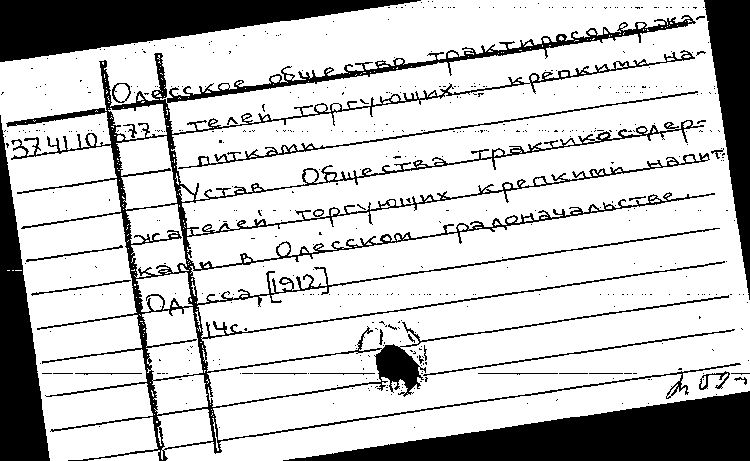 Одесское общество трактиросодержа-
37.41.10. 577. телей, торгующих крепкими на-
питками.
Устав Общества трактикосодер-
жателей, торгующих крепкими напит
ками в Одесском градоначальстве.
Одесса, [1912]
14с.